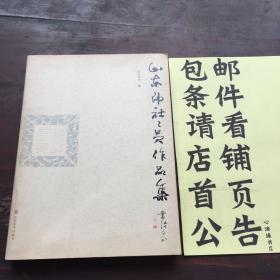 山东印社々员作品集
包邮
条件
请看
店铺
首页
公告